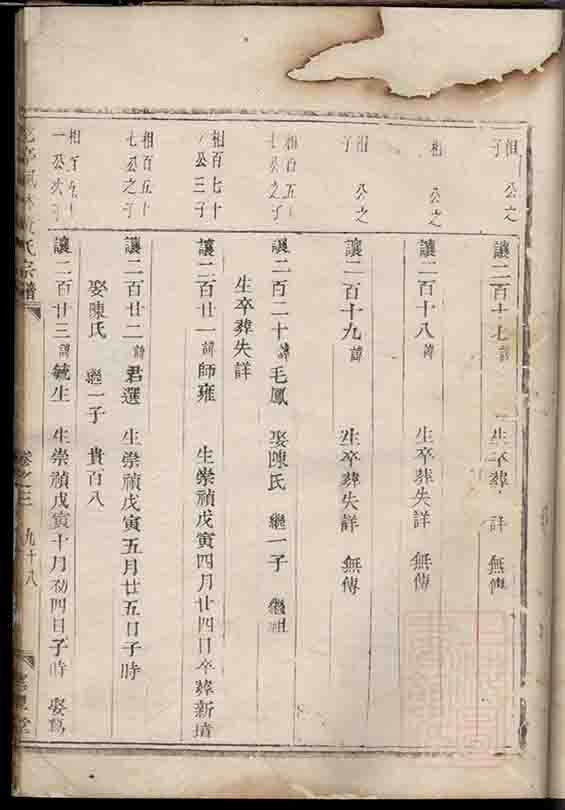 相 公之子
讓二百十七諱 生卒葬 詳 無傳
相 公之
讓二百十八諱 生卒葬失詳 無傳
相 公之子
讓二百十九諱 生卒葬失詳 無傳
相百五十 公之子
讓二百二十諱毛鳳 娶陳氏 繼一子 繼祖
生卒葬失詳
相百七十 公三子
讓二百廿一諱師雍 生崇禎戊寅四月廿四日卒葬新墳
相百五十七公之子
讓二百廿二諱君選 生崇禎戊寅五月廿五日子時
娶陳氏 繼一子 貴百八
相百 十一公次子
讓二百廿三諱毓生 生崇禎戊寅十月初四日子時 娶
氏宗譜 卷之三 九十八 堂